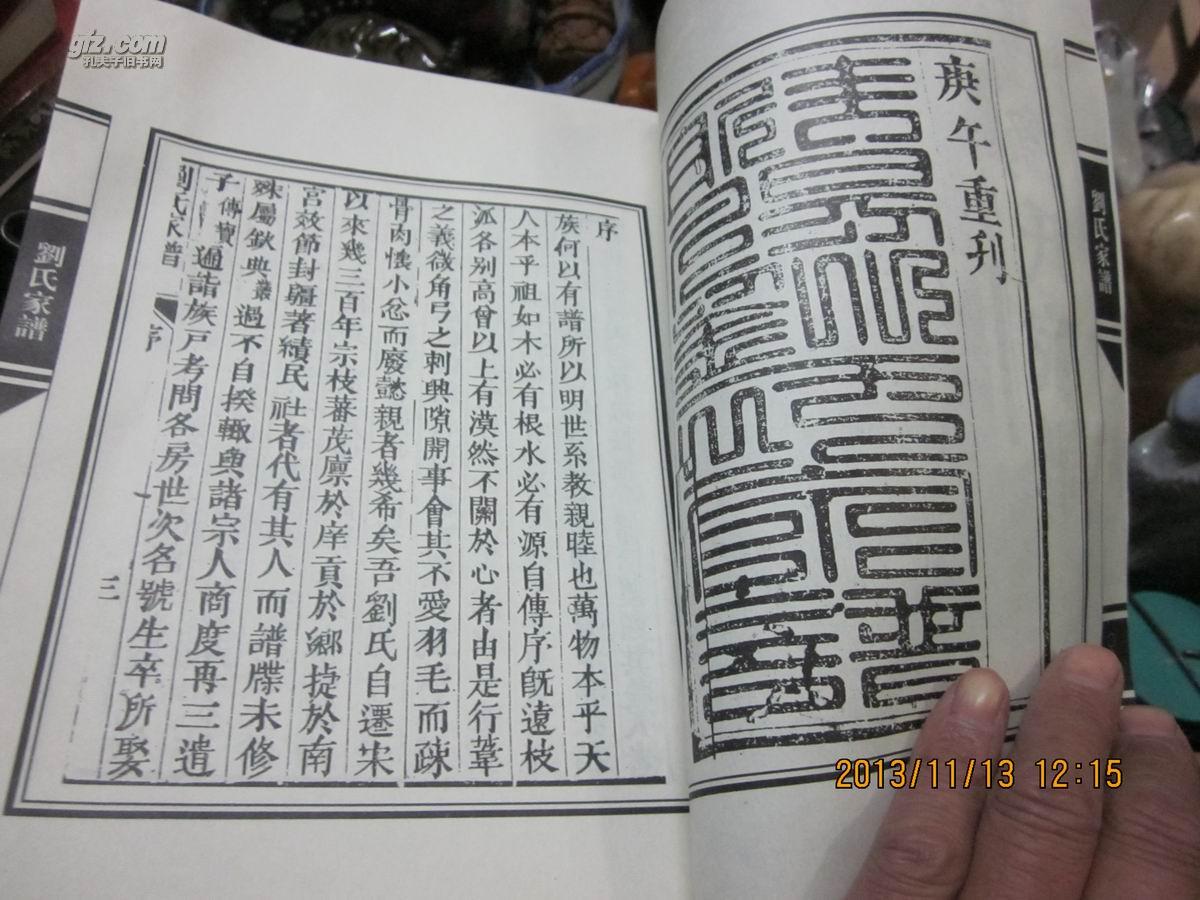 庚午重刋
劉氏家譜
序
族何以有譜所以明世系教親睦也萬物本乎天
人本乎祖如木必有根水必有源自傳序旣遠枝
派各别高曾以上有漠然不關於心者由是行葦
之義微角弓之刺興隙開事會其不愛羽毛而疎
骨肉懷小忿而廢懿親者幾希矣吾劉氏自遷宋
以來幾三百年宗枝蕃茂廪於庠貢於鄉捷於南
宫效節封疆著績民社者代有其人而譜牒未修
殊屬欽典 過不自揆輙與諸宗人商度再三遣
子傳 遍詣族戸考問各房世次名號生卒所娶
劉氏家譜 序
三
劉氏家譜
gjz.com
孔夫子旧书网
2013/11/13 12:15